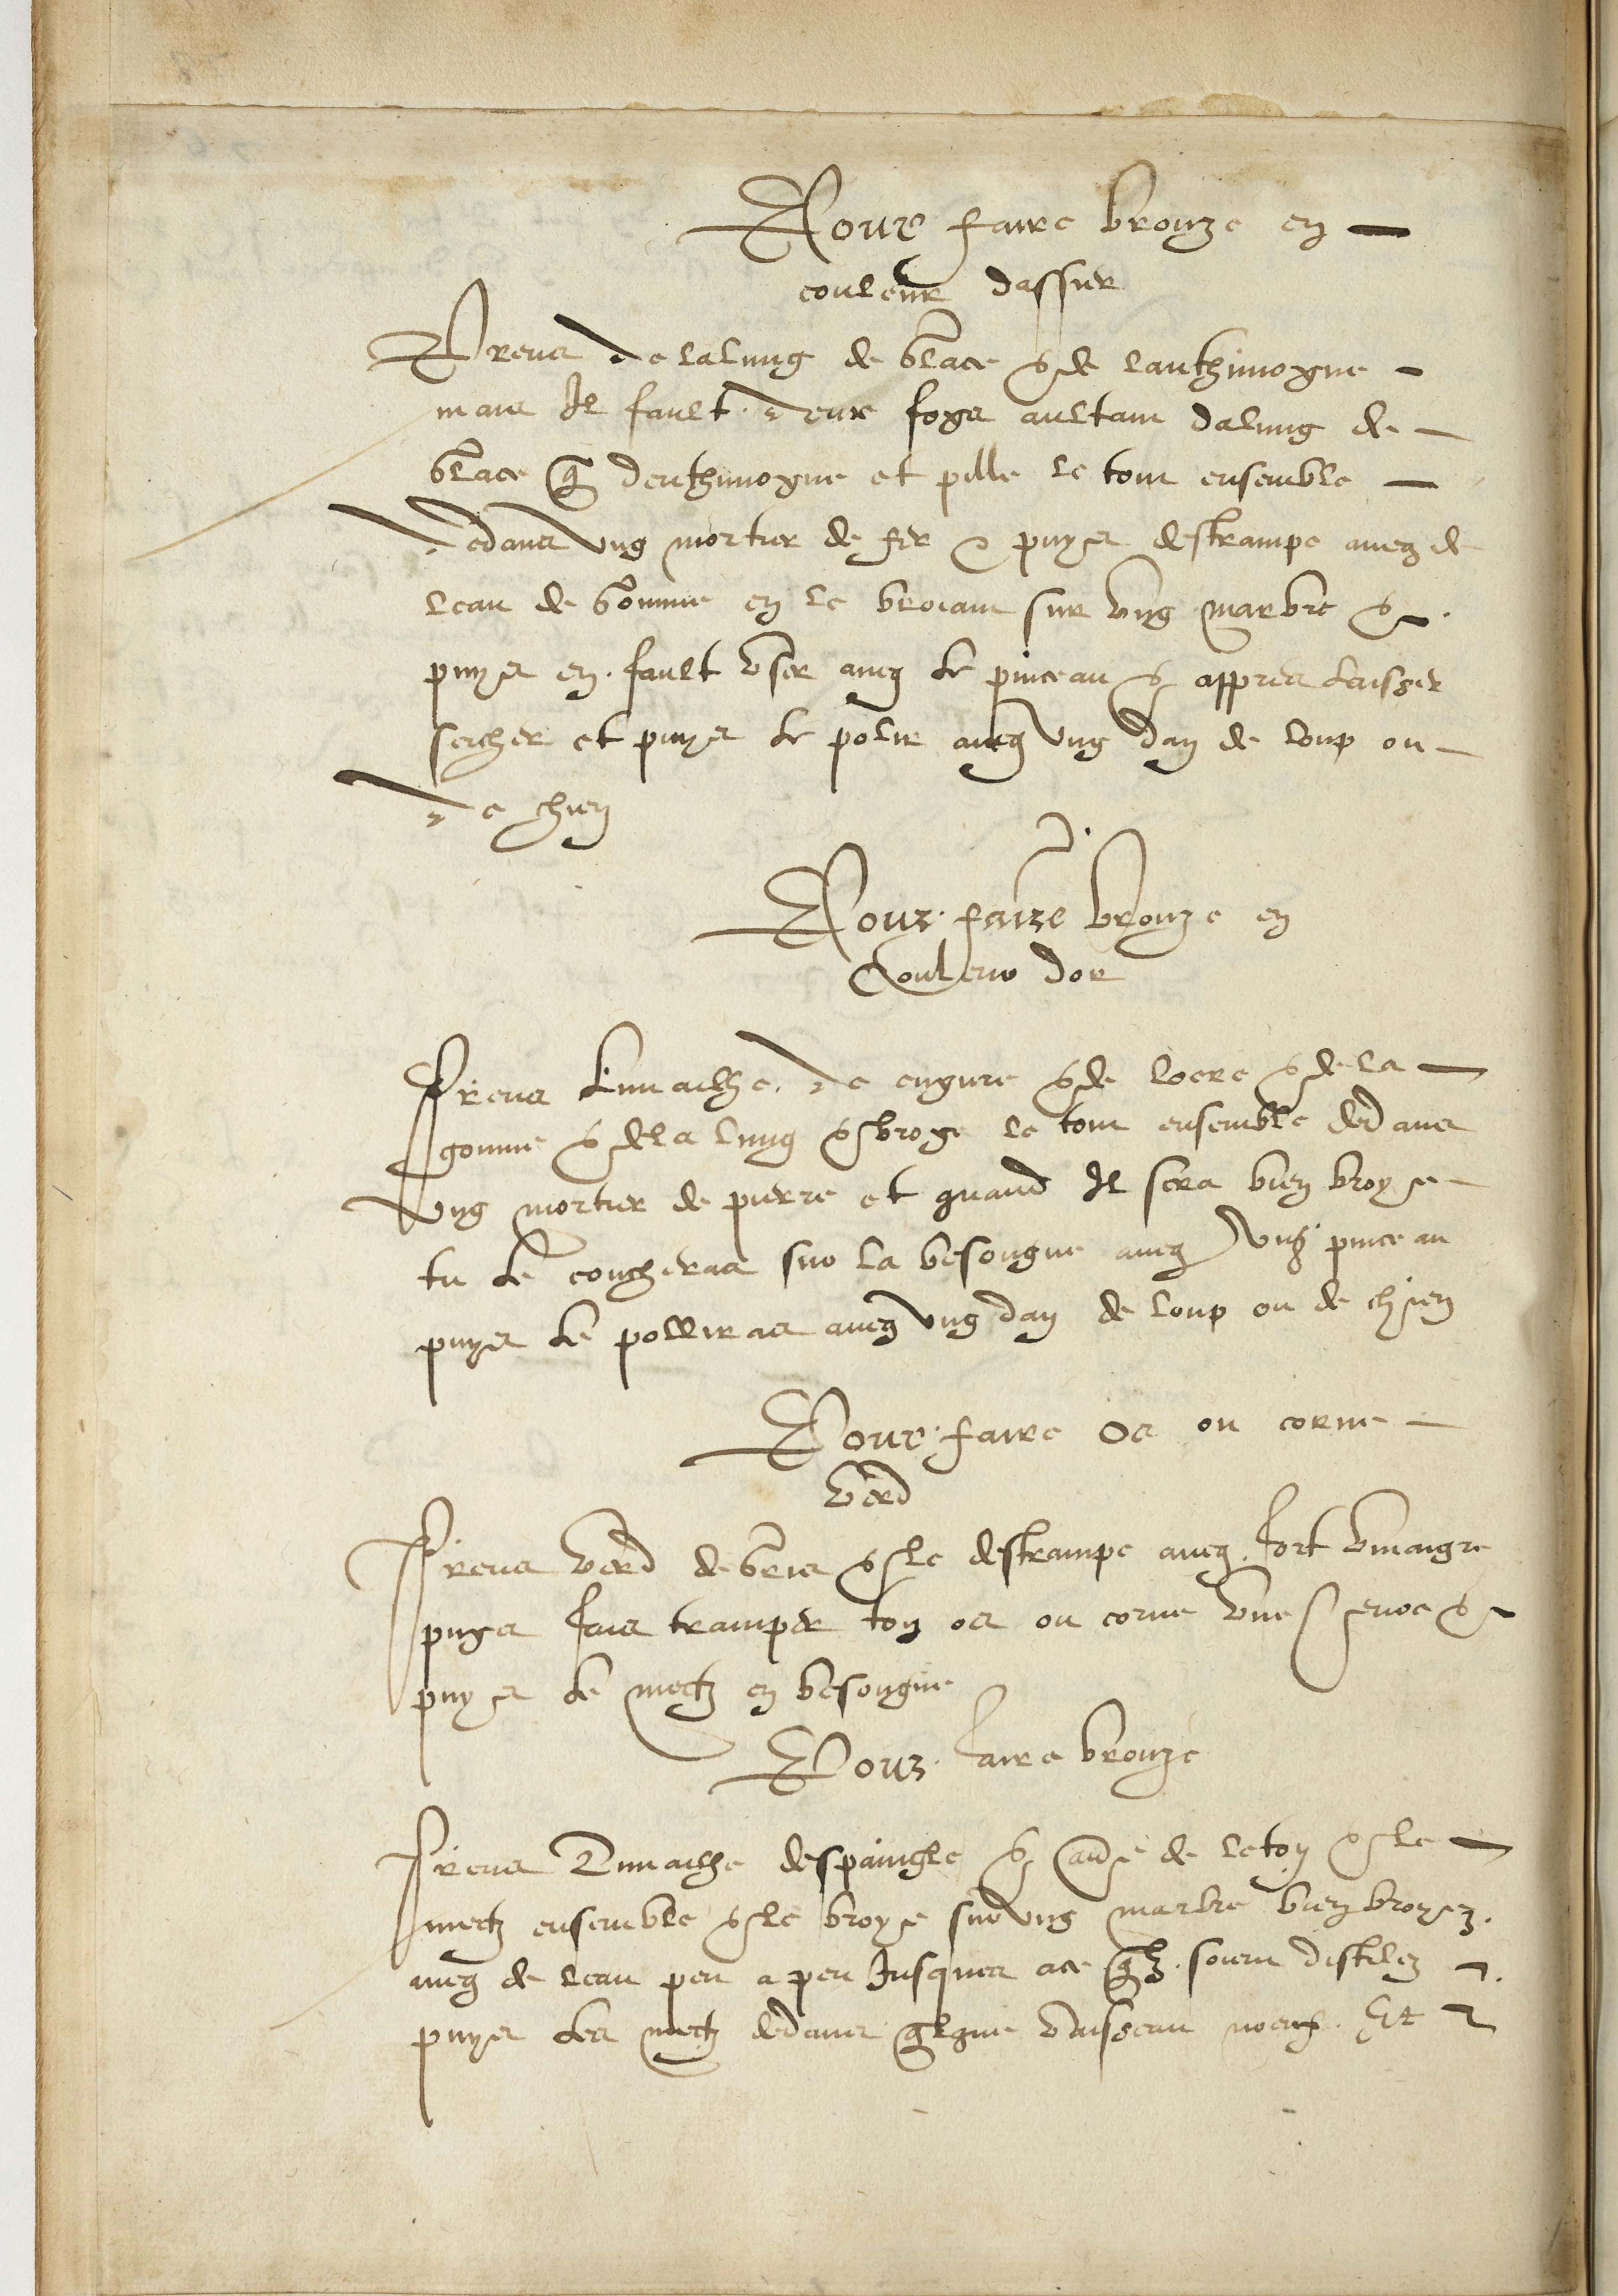 Pour faire bronze en
couleur dassier
Prens de lalung de glace & de lanthimoyne
mais Il fault deux foys aultant dalung de
glace que denthimoyne et pille le tout ensemble
dedans ung mortier de fer & puys destrampe aueq de
leau de gomme en le broiant sur ung marbre &
puys en fault user aueq le pinceau & appres laisser
seicher et puys le polir aueq ung dan de loup ou
de chien
Pour faire bronze en
Couleur dor
Prens limailhe de & de locre & de la
gomme & de la lung & broye le tout ensemble dedans
ung mortier de pierre et quand Il sera bien broye
tu le coucheras sur la besongne aueq ung pinceau
puys le polliras aueq ung dan de loup ou de chien
Pour faire os ou corne
verd
Prens verd de gris & le destrampe aueq fort vinaigre
puys fais tramper ton os ou corne une &
puys le metz en besongne
Pour faire bronze
Prens limailhe despaingle & de leton & le
metz ensemble & le broye sur ung marbre bien broyez
aueq de leau peu a peu Jusques a ce quilz soient distilez
puys les metz dedans quelque vaisseau noeuf Et